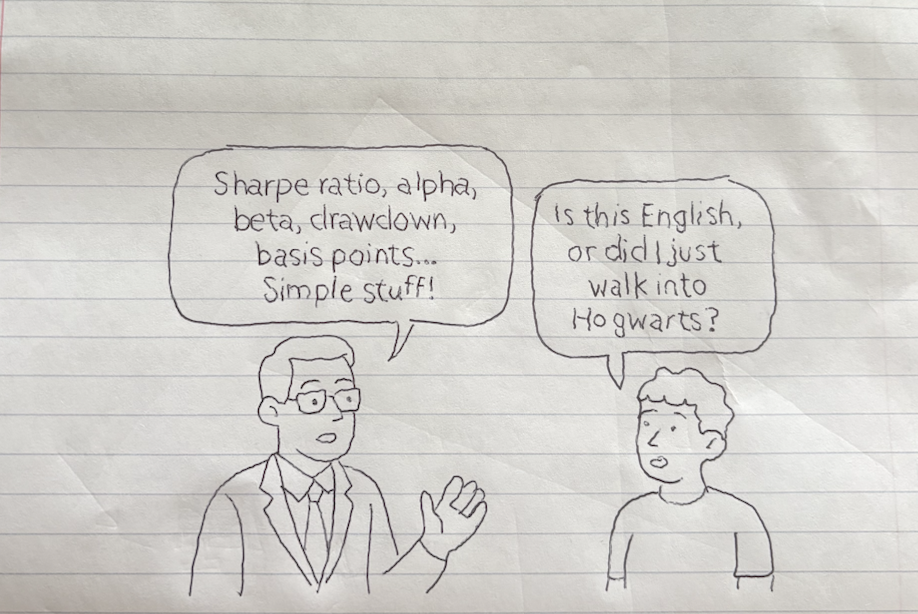 Sharpe ratio, alpha,
beta, drawdown,
basis points...
Simple stuff!
Is this English,
or did I just
walk into
Hogwarts?